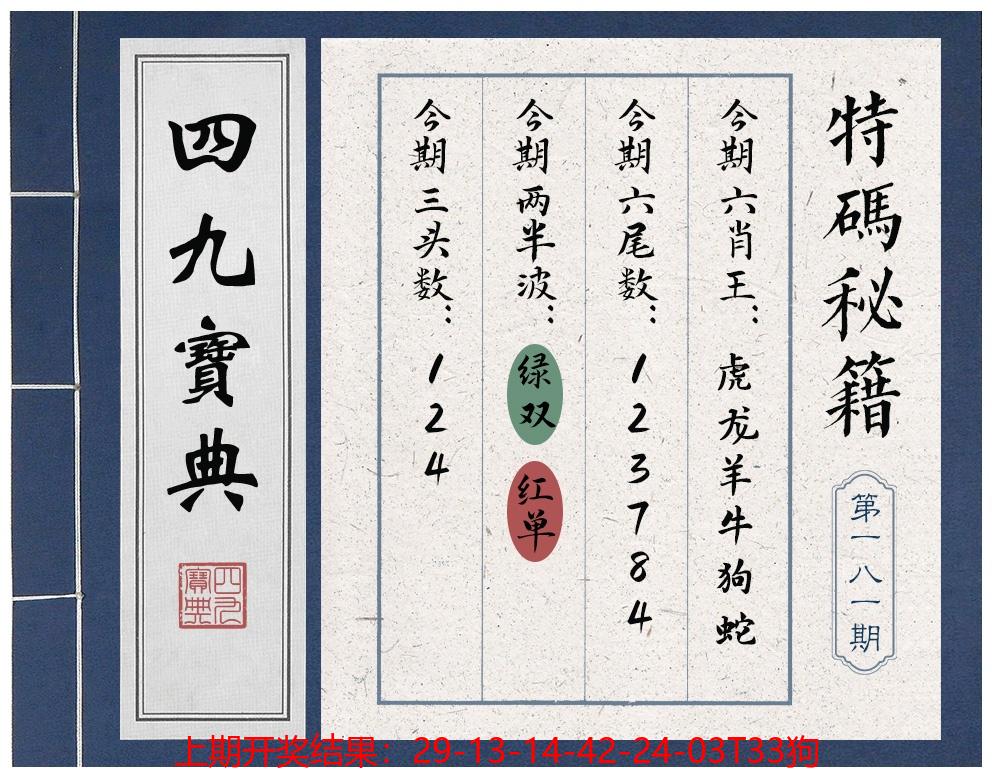 特碼秘籍
第一八一期
今期六肖王：虎龙羊牛狗蛇
今期六尾数：123784
今期两半波：绿双 红单
今期三头数：124
四九寶典
四九寶典
上期开奖结果：29-13-14-42-24-03T33狗